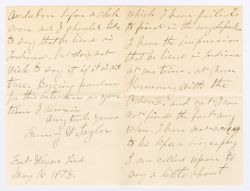 Audubon before a club
soon and I should like to
say that he lived in
Indiana but do not
wish to say if it is not
true. Begging pardon
for this intrusion on your
time I remain
Very truly yours
Fannie J. W. Taylor
Fort Wayne Ind.
May 18
which I have failed
to find in the cyclopedia.
I have the impression
that he lived in Indiana
at one time at New
Harmony with the
and yet I can
not find the fact any
where. I have not access
to his life or biography.
I am called upon to
say a little about